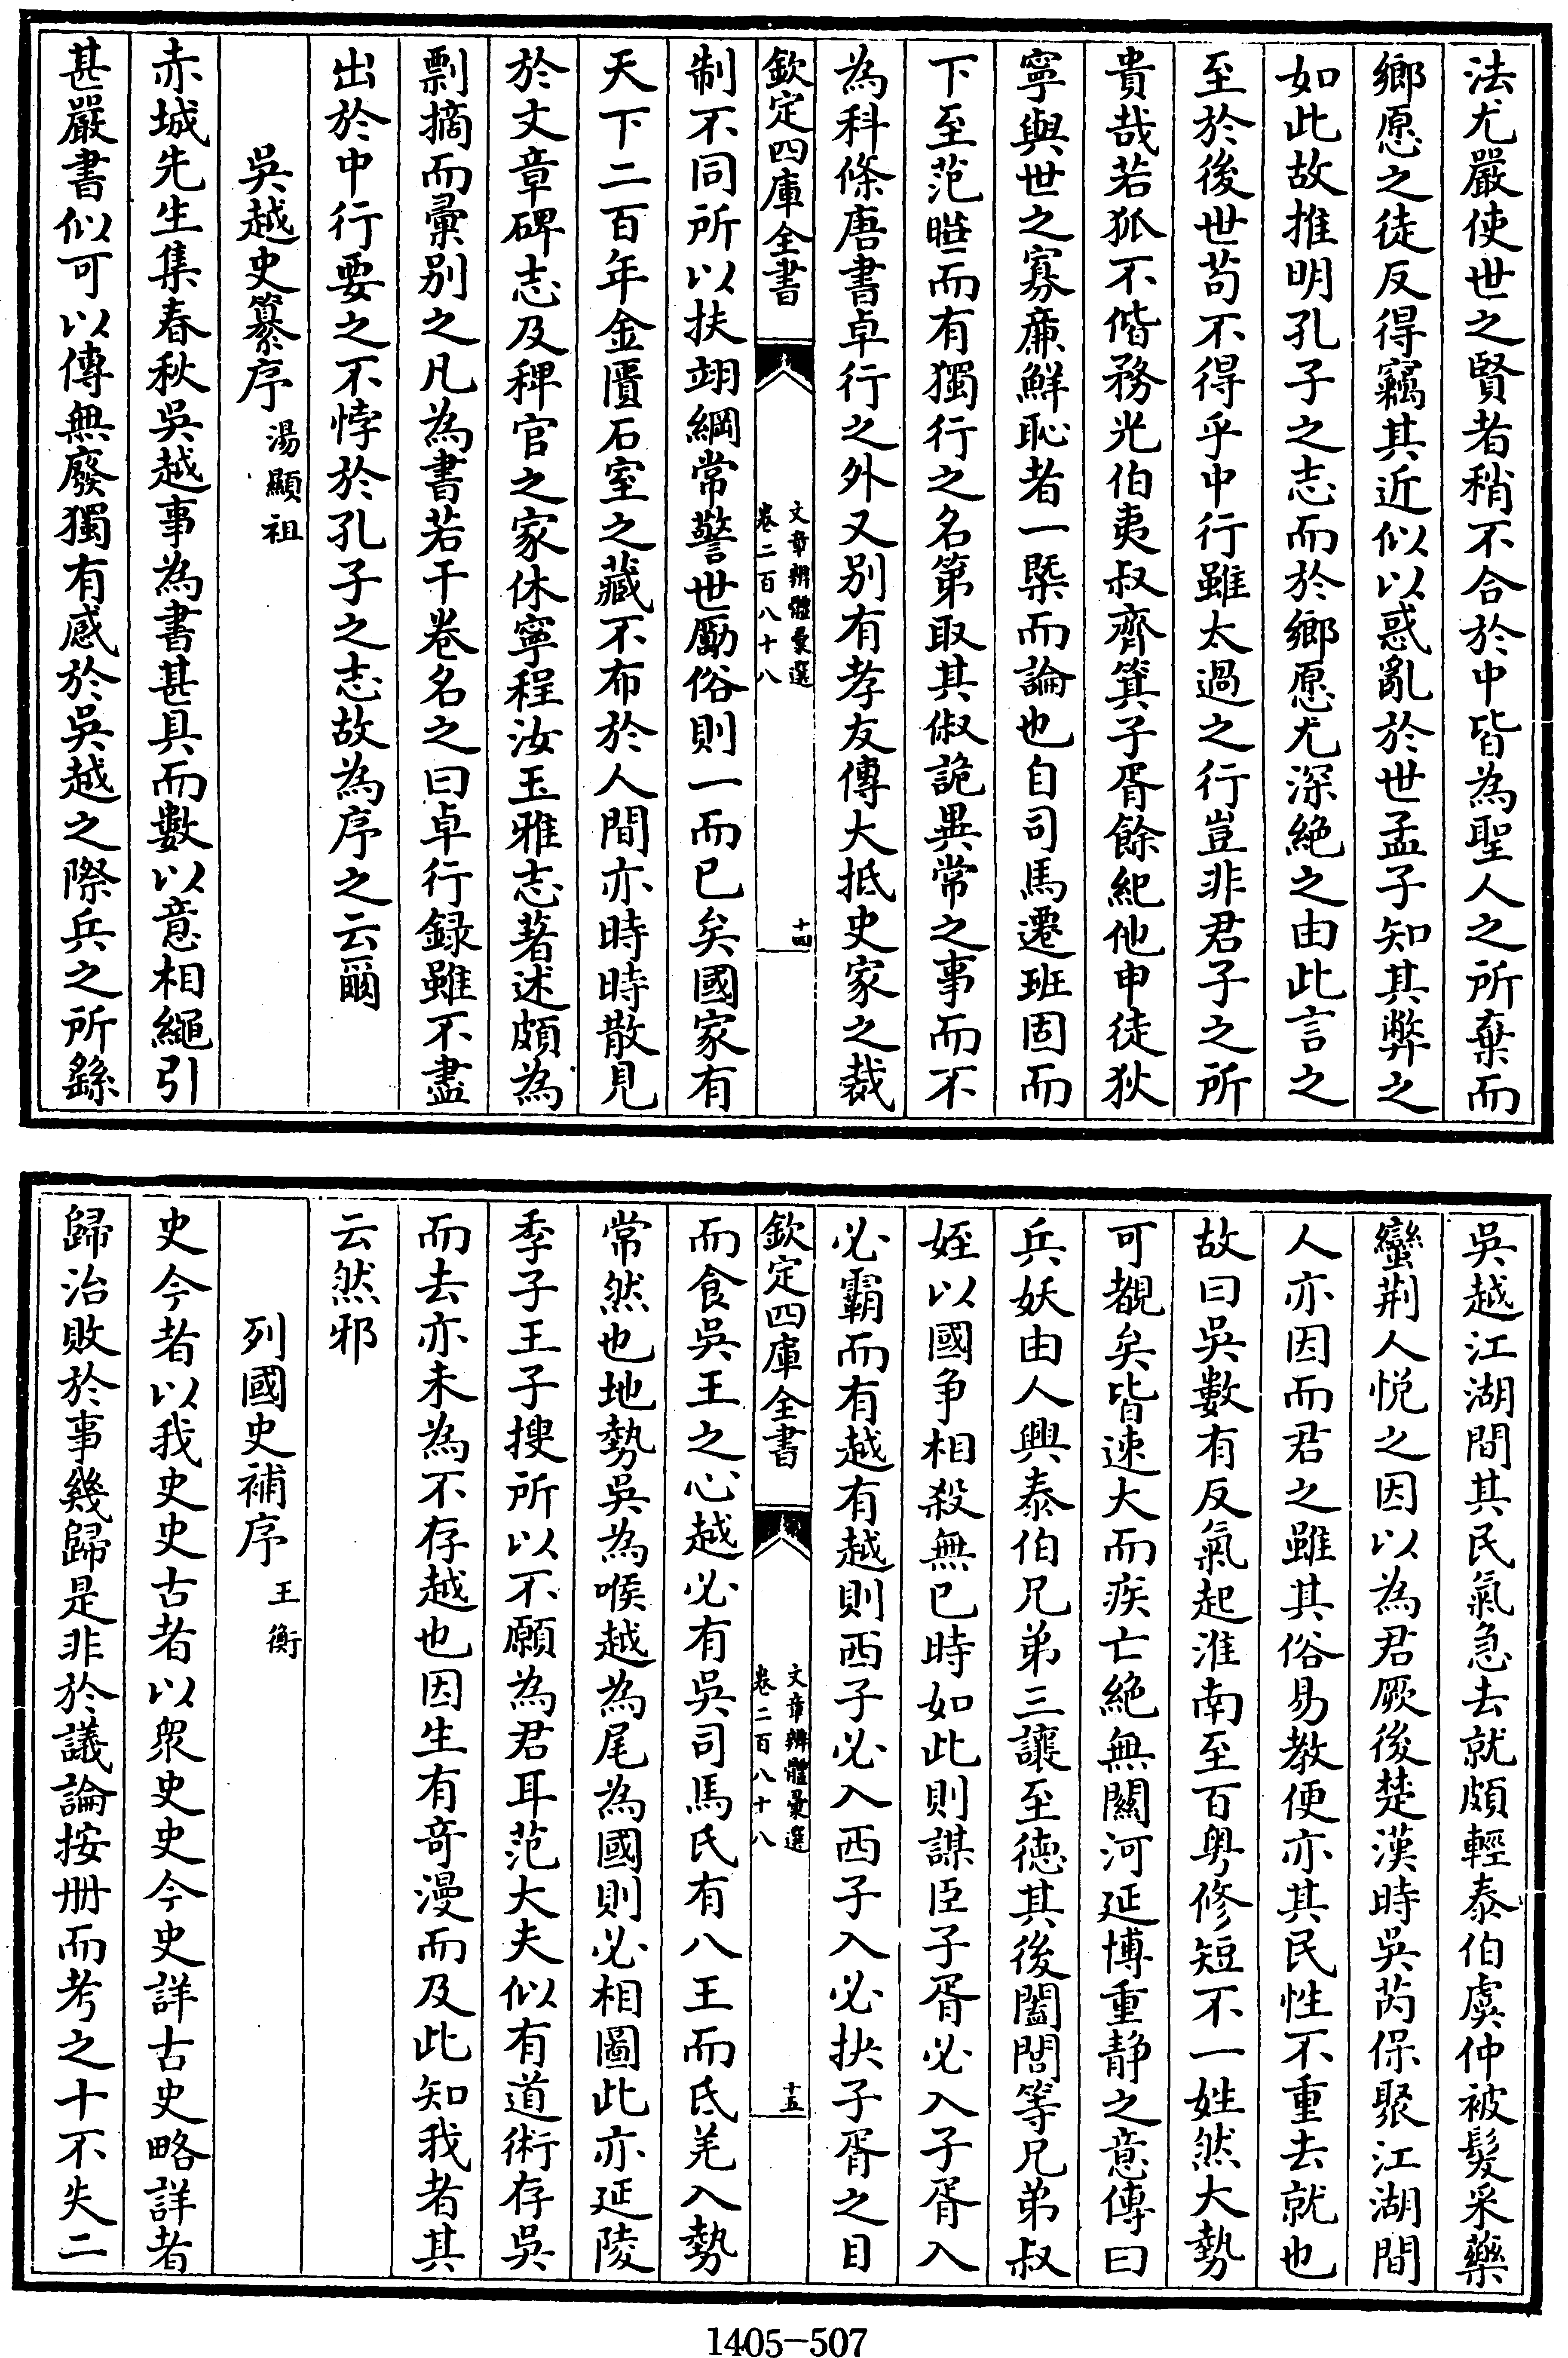 法尤嚴使世之賢者稍不合於中皆為聖人之所棄而
鄉愿之徒反得竊其近似以惑亂於世孟子知其弊之
如此故推明孔子之志而於鄉愿尤深絶之由此言之
至於後世苟不得乎中行雖太過之行豈非君子之所
貴哉若狐不偕務光伯夷叔齊箕子胥餘紀他申徒狄
寧與世之寡亷鮮恥者一槩而論也自司馬遷班固而
下至范曄而有獨行之名第取其俶詭異常之事而不
為科條唐書卓行之外又别有孝友傳大抵史家之裁
欽定四庫全書
文章辨體彙選
卷二百八十八
十四
制不同所以扶翊綱常警世勵俗則一而已矣國家有
天下二百年金匱石室之藏不布於人間亦時時散見
於文章碑志及稗官之家休寧程汝玉雅志著述頗為
剽摘而彙别之凡為書若干卷名之曰卓行録雖不盡
出於中行要之不悖於孔子之志故為序之云爾
吳越史纂序 湯顯祖
赤城先生集春秋吳越事為書甚具而數以意相繩引
甚嚴書似可以傳無廢獨有感於吳越之際兵之所繇
吳越江湖間其民氣急去就頗輕泰伯虞仲被髮采藥
蠻荆人悅之因以為君厥後楚漢時吳芮保聚江湖間
人亦因而君之雖其俗易教便亦其民性不重去就也
故曰吳數有反氣起淮南至百粤修短不一姓然大勢
可覩矣皆速大而疾亡絶無關河延博重静之意傳曰
兵妖由人興泰伯兄弟三讓至德其後闔閭等兄弟叔
姪以國争相殺無已時如此則謀臣子胥必入子胥入
必霸而有越有越則西子必入西子入必抉子胥之目
欽定四庫全書
文章辨體彙選
卷二百八十八
十五
而食吳王之心越必有吳司馬氏有八王而氐羌入勢
常然也地勢吳為喉越為尾為國則必相圖此亦延陵
季子王子搜所以不願為君耳范大夫似有道術存吳
而去亦未為不存越也因生有奇漫而及此知我者其
云然邪
列國史補序 王衡
史今者以我史史古者以衆史史今史詳古史略詳者
歸治敗於事幾歸是非於議論按册而考之十不失二
1405-507